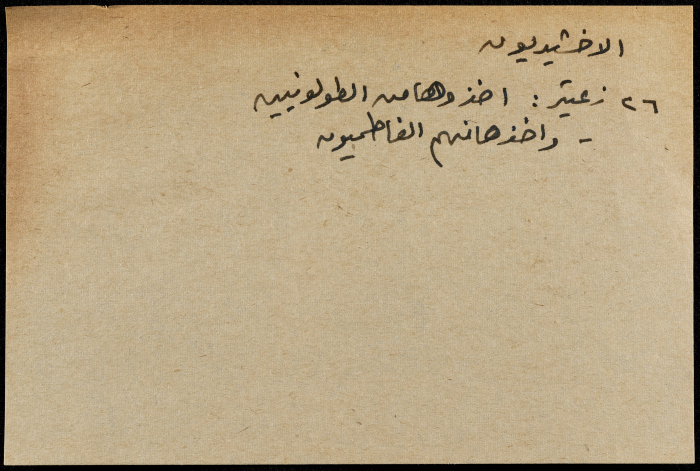 الاخشيديون
٢٦ زعيتر : اخذوها من الطولونيين
- واخذها منهم الفاطميون